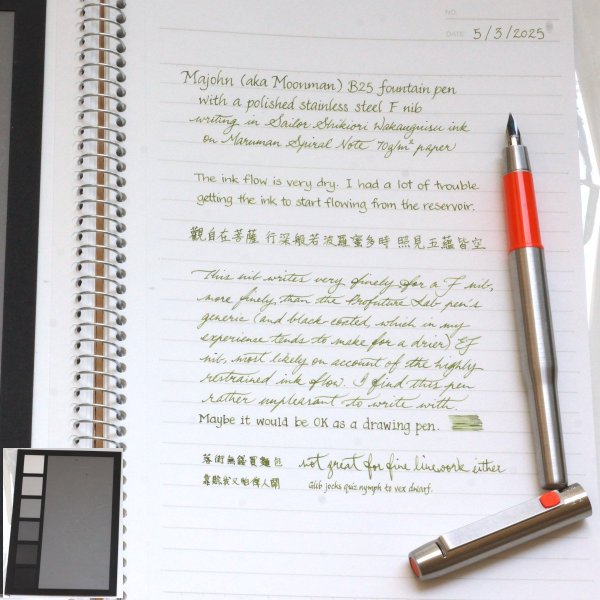 NO.
DATE 5/3/2025
Majohn (aka Moonman) B25 fountain pen
with a polished stainless steel F nib
writing in Sailor Shikiori Wakauguisu ink
on Maruman Spiral Note 70g/m² paper
The ink flow is very dry. I had a lot of trouble
getting the ink to start flowing from the reservoir.
觀自在菩薩 行深般若波羅蜜多時 照見五蘊皆空
This nib writes very finely for a F nib,
more finely, than the Profuture Lab pen's
generic (and black coated, which in my
experience tends to make for a drier) EF
nib, most likely on account of the highly
restrained ink flow. I find this pen
rather unpleasant to write with.
Maybe it would be OK as a drawing pen.
not great for fine linework either
Glib jocks quiz nymph to vex dwarf.